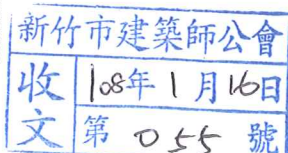 新竹市建築師公會
收文
108年1月16日
第055號